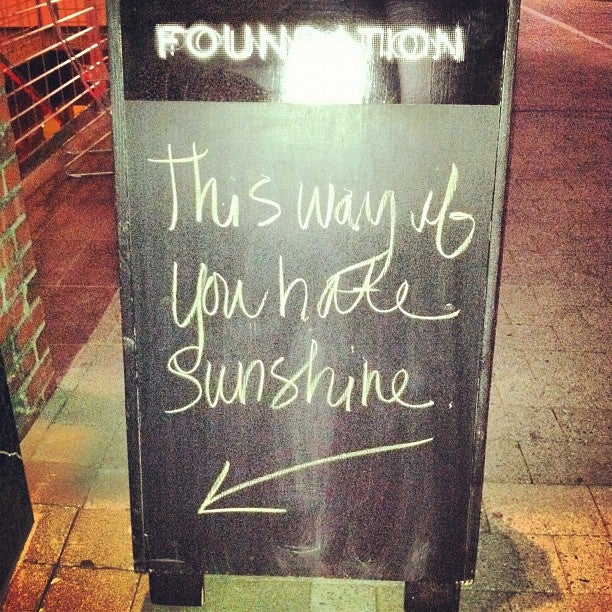 FOUNDATION
This way if
you hate
sunshine.